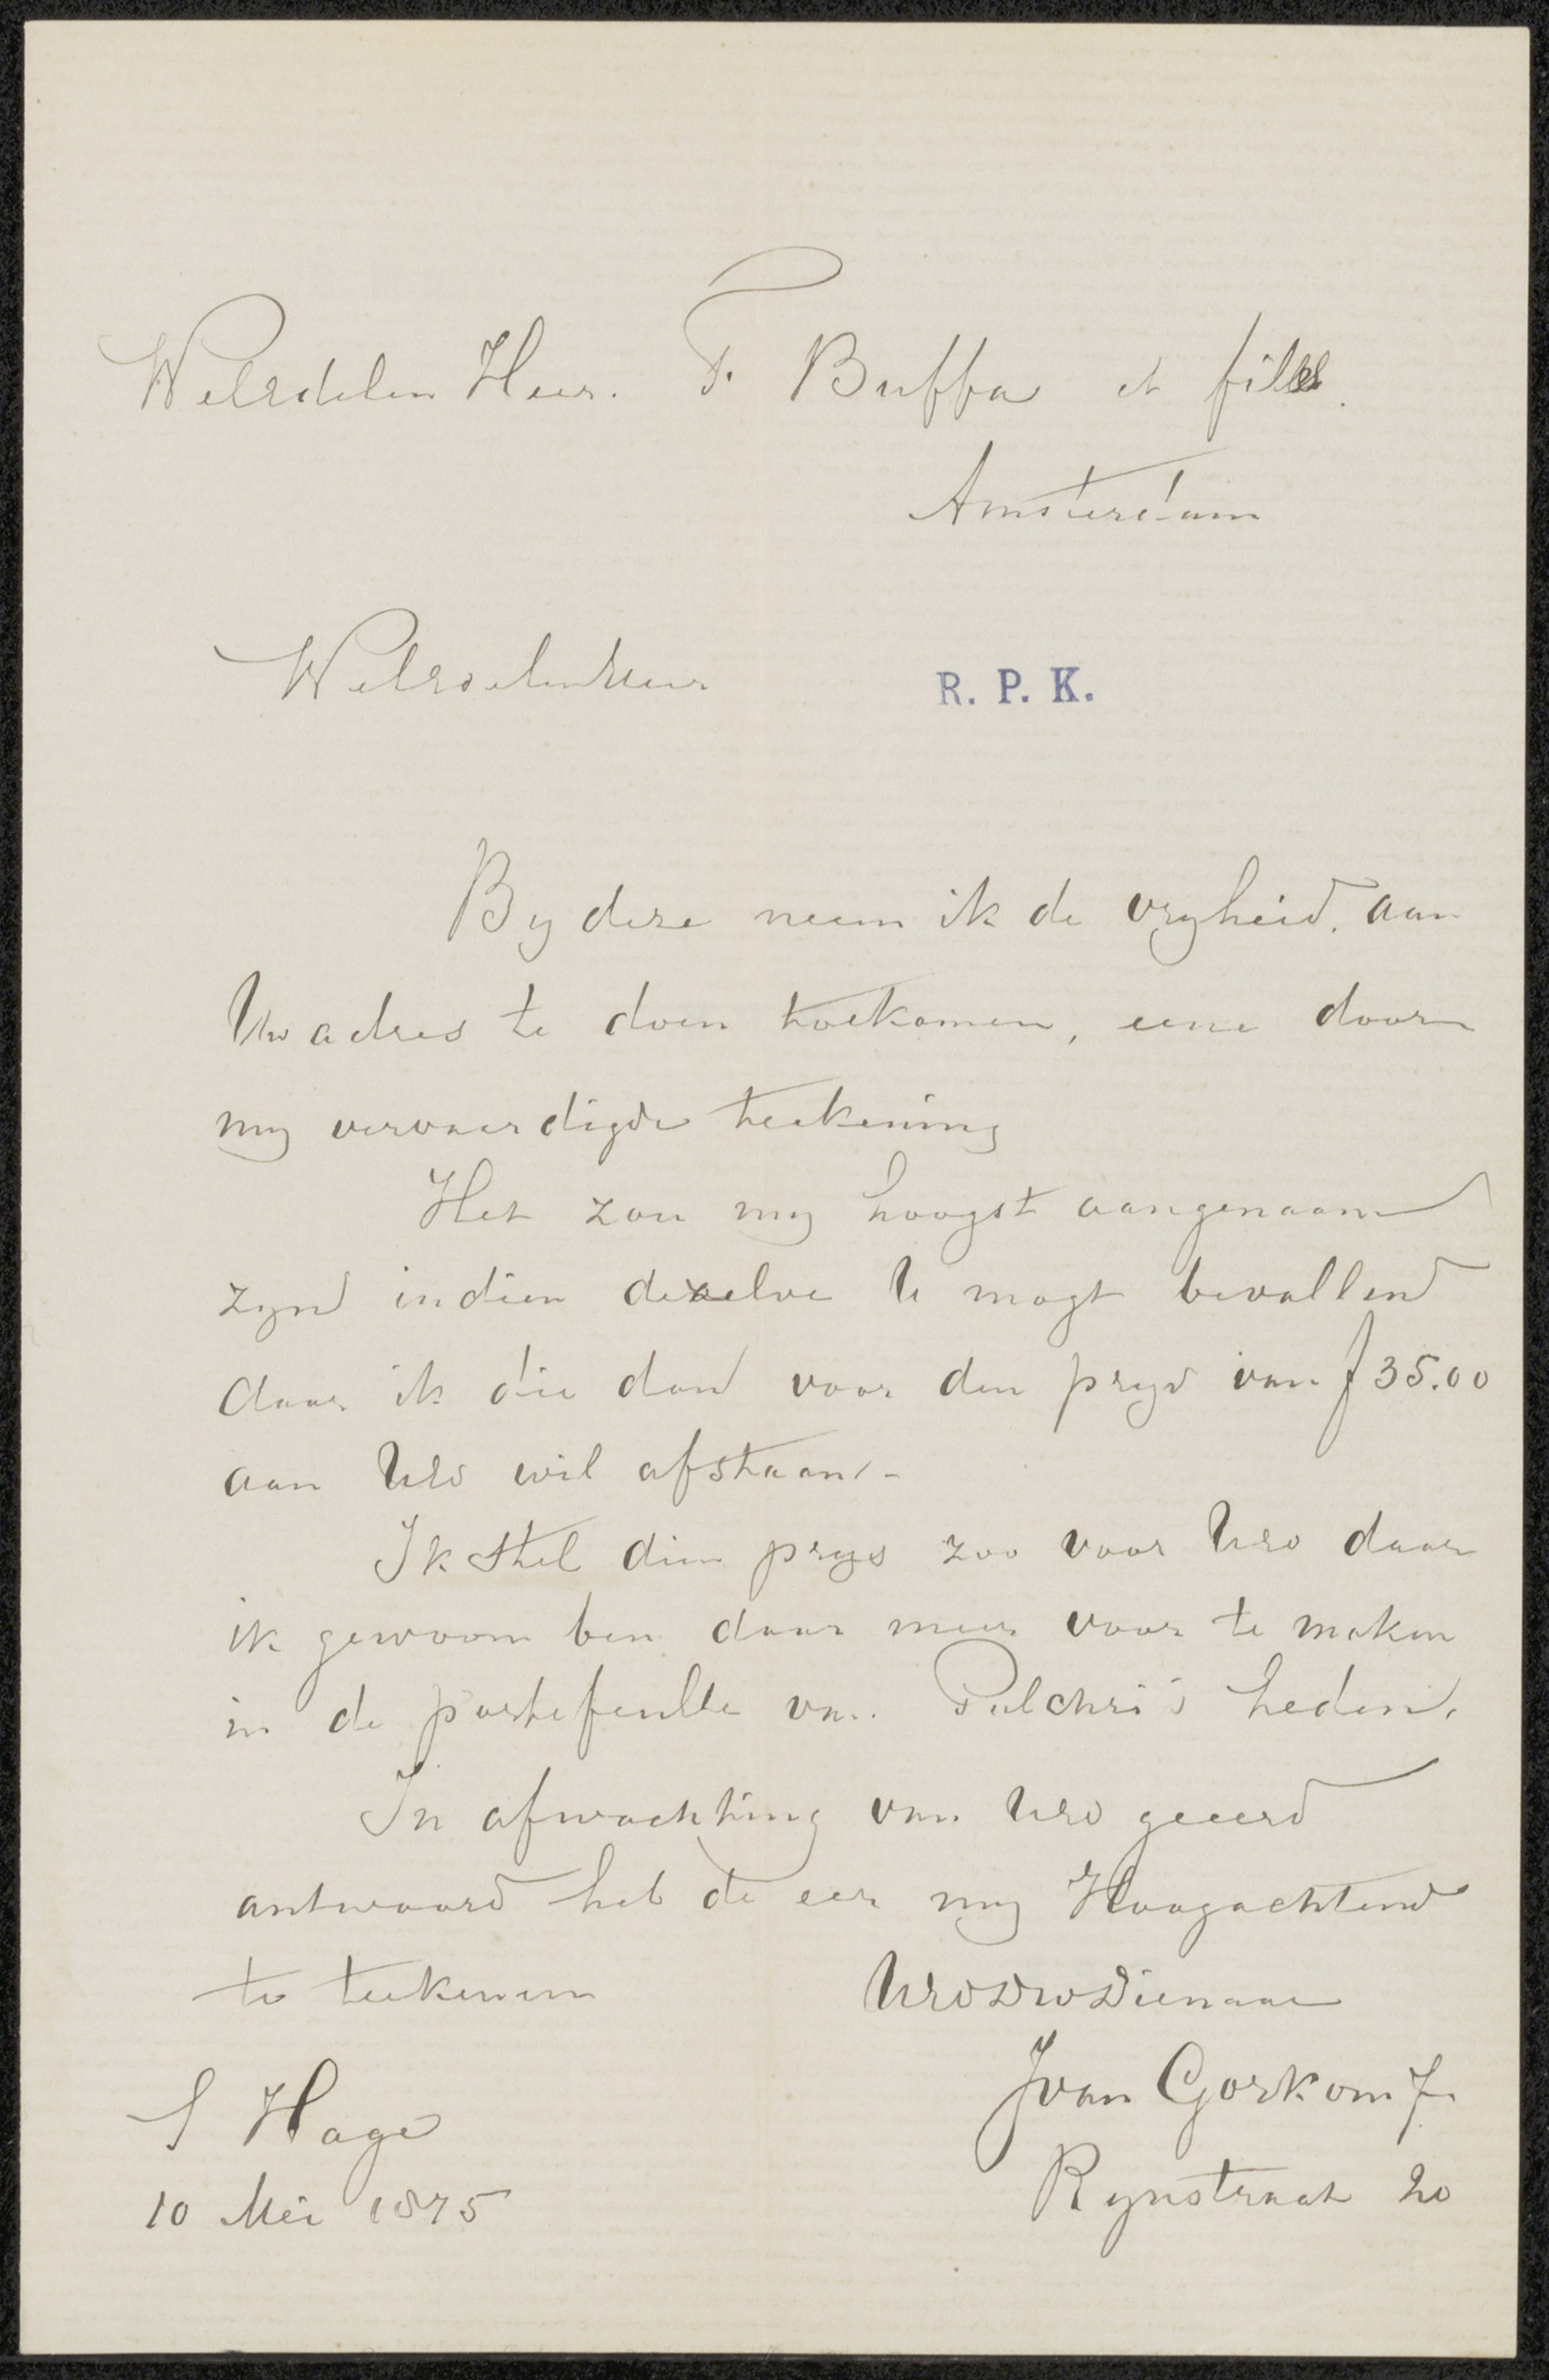 WelEdelen Heer. F. Buffa et fils.
Amsterdam
WelEdelenHeer
R. P. K.
By deze neem ik de vryheid, aan
Uw adres te doen toekomen, eene door
my vervaardigde teekening
Het zou my hoogst aangenaam
zyn indien dezelve U mogt bevallen
daar ik die dan voor den prys van f 35.00
aan UEd wil afstaan.-
Ik stel dien prys zoo voor UEd daar
ik gewoon ben daar meer voor te maken
in de portefeulle van Pulchri's heden.
In afwachting van UEd geeerd
antwoord heb de eer my Hoogachtend
te teekenen UEdDwDienaar
J van Gorkom Jr
S Hage
Rynstraat 20
10 Mei 1875